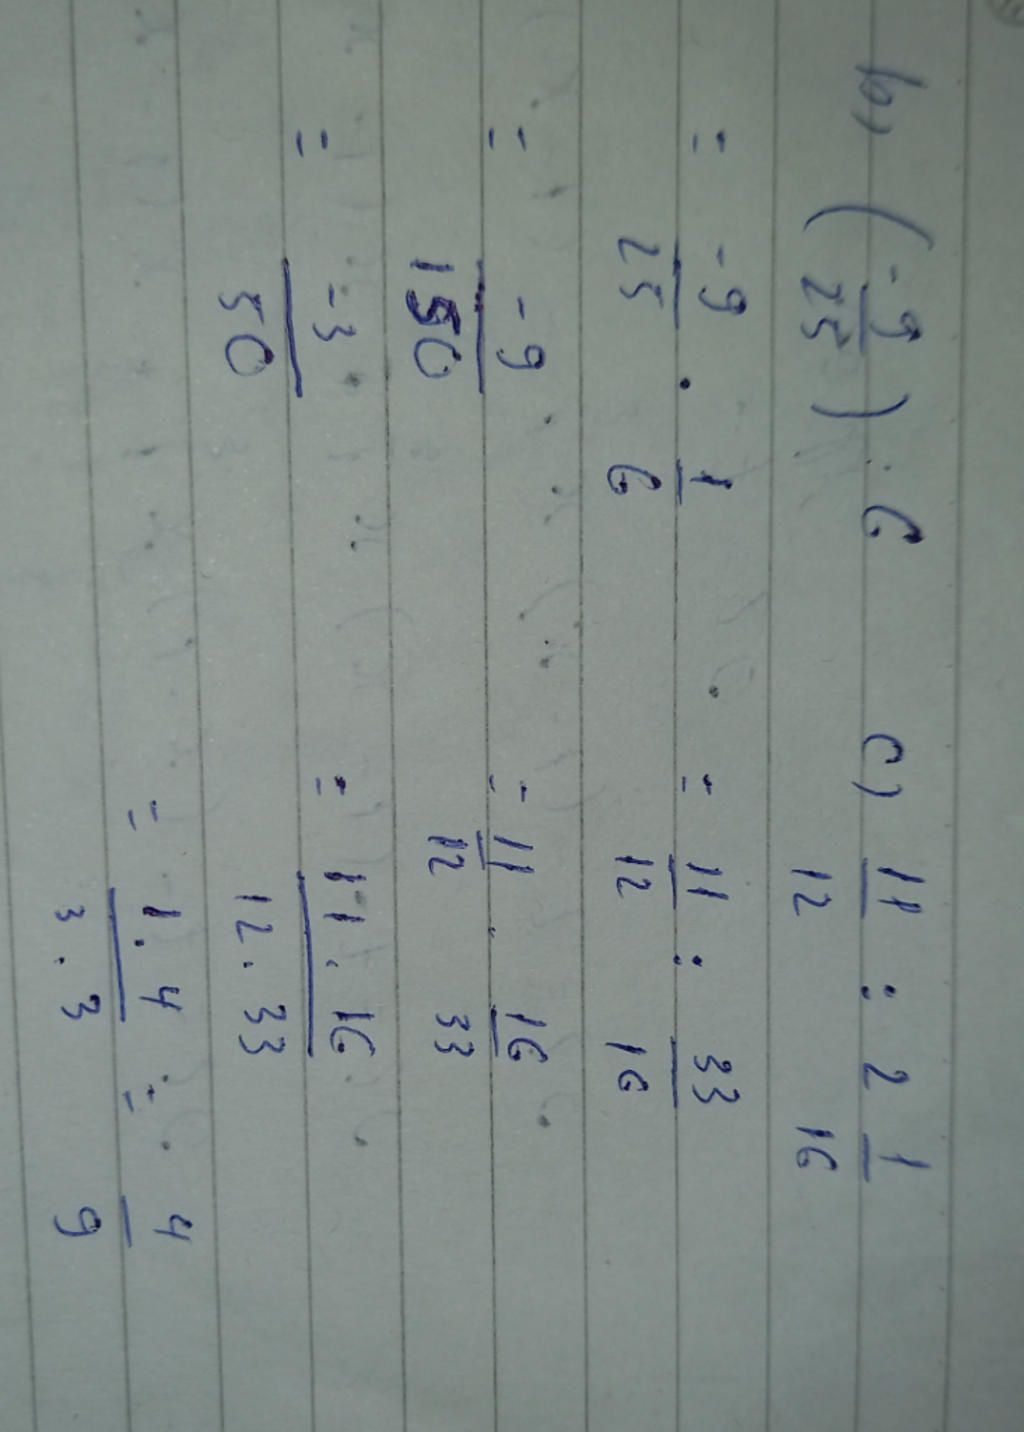 b) (-9/25) : 6
= -9/25 . 1/6
= -9/150
= -3/50
c) 11/12 : 2 1/16
= 11/12 : 33/16
= 11/12 . 16/33
= 11.16/12.33
= 1.4/3.3 = 4/9